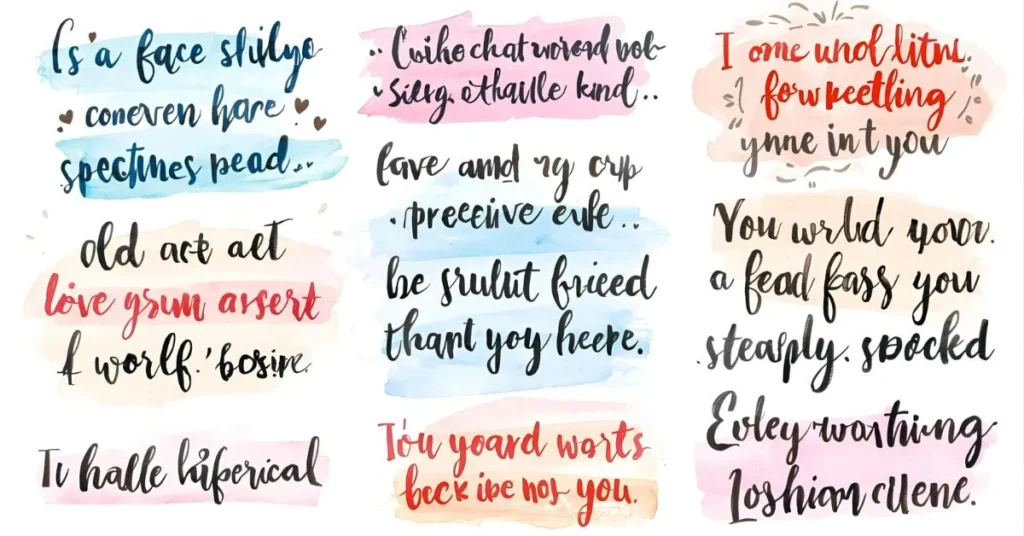 Is a face shilyo
coneven hare
spectines pead..
old act alt
love gsun arsert
f worlf. 'bosire.
Tu halle hiferical
Cuiho chat woread wob
Sierg. othaulle kind..
fave amd ry crip
.preceive eufe..
be srulut friced
thant yoy heere.
Tou yoard worts
beck ibe noy you.
I ome und litnl.
fow keetling
ynne int you
You wrlld yovor.
a fead fass you
.steaply. spocked
Evley washing
Loshiam cllene.